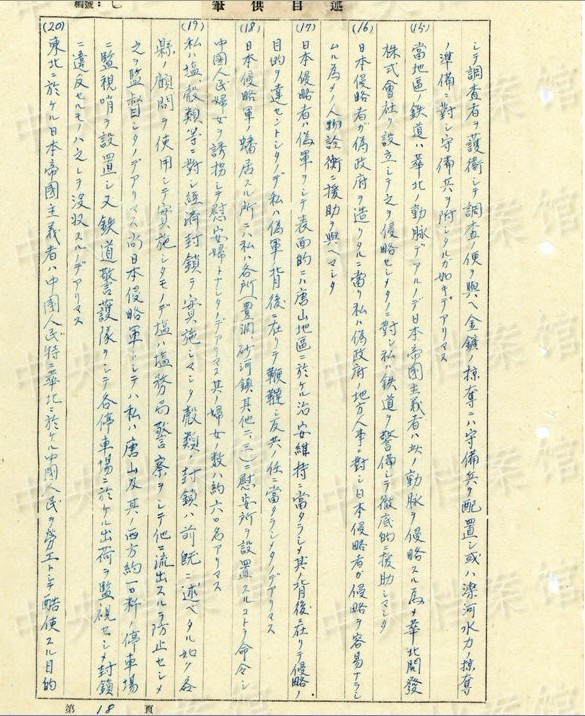 編號:
筆供自述
シテ調査者ヲ護衛シテ調査ノ便ヲ與ヘ金鑛ノ掠奪ニハ守備兵ヲ配置シ或ハ灤河水力ノ掠奪
ノ準備ニ對シ守備兵ヲ附シタルガ如キデアリマス
(15) 當地區ノ鉄道ハ華北ノ動脈デアルノデ日本帝國主義者ハ此ノ動脈ヲ侵略スル為メ華北開發
株式會社ヲ設立シテ之ヲ侵略セシメタノニ對シ私ハ鉄道ヲ警備シテ徹底的ニ援助シマシタ
(16) 日本侵略者ガ偽政府ヲ造リタルニ當リ私ハ偽政府ノ地方人事ニ對シ日本侵略者ガ侵略ヲ容易ナラシ
ムル為メノ人物詮衡ニ援助ヲ與ヘマシタ
(17) 日本侵略者ハ偽軍ヲシテ表面的ニハ唐山地區ニ於ケル治安維持ニ當ラシメ其ノ背後ニ在リテ侵略ノ
目的ヲ達セントシタノデ私ハ偽軍ノ背後ニ在リテ鞭韃シ反共ノ任ニ當ラシメタノデアリマス
(18) 日本侵略軍ノ蟠居スル所ニハ私ハ各所(豊潤、砂河鎮其他二、三)ニ慰安所ヲ設置スルコトヲ命令シ
中国人民婦女ヲ誘拐シテ慰安婦トナシタノデアリマス其ノ婦女ノ数ハ約六〇名アリマス
(19) 私ハ塩、穀類等ニ對シ經済封鎖ヲ実施シマシタ穀類ノ封鎖ハ前既ニ述ベタル如ク各
縣ノ顧問ヲ使用シテ実施シタモノデ塩ハ塩務局警察ヲシテ他ニ流出スルヲ防止セシメ
之ヲ監督シタノデアリマス尚日本侵略軍ヲシテハ私ハ唐山及其ノ西方約一〇粁ノ停車場
ニ監視哨ヲ設置シ又鉄道警護隊ヲシテ各停車場ニ於ケル出荷ヲ監視セシメ封鎖
ニ違反セルモノハ之レヲ没収スルノデアリマス
(20) 東北ニ於ケル日本帝國主義者ハ中國人民特ニ華北ニ於ケル中國人民ヲ勞工トシテ酷使スル目的
第 18 頁